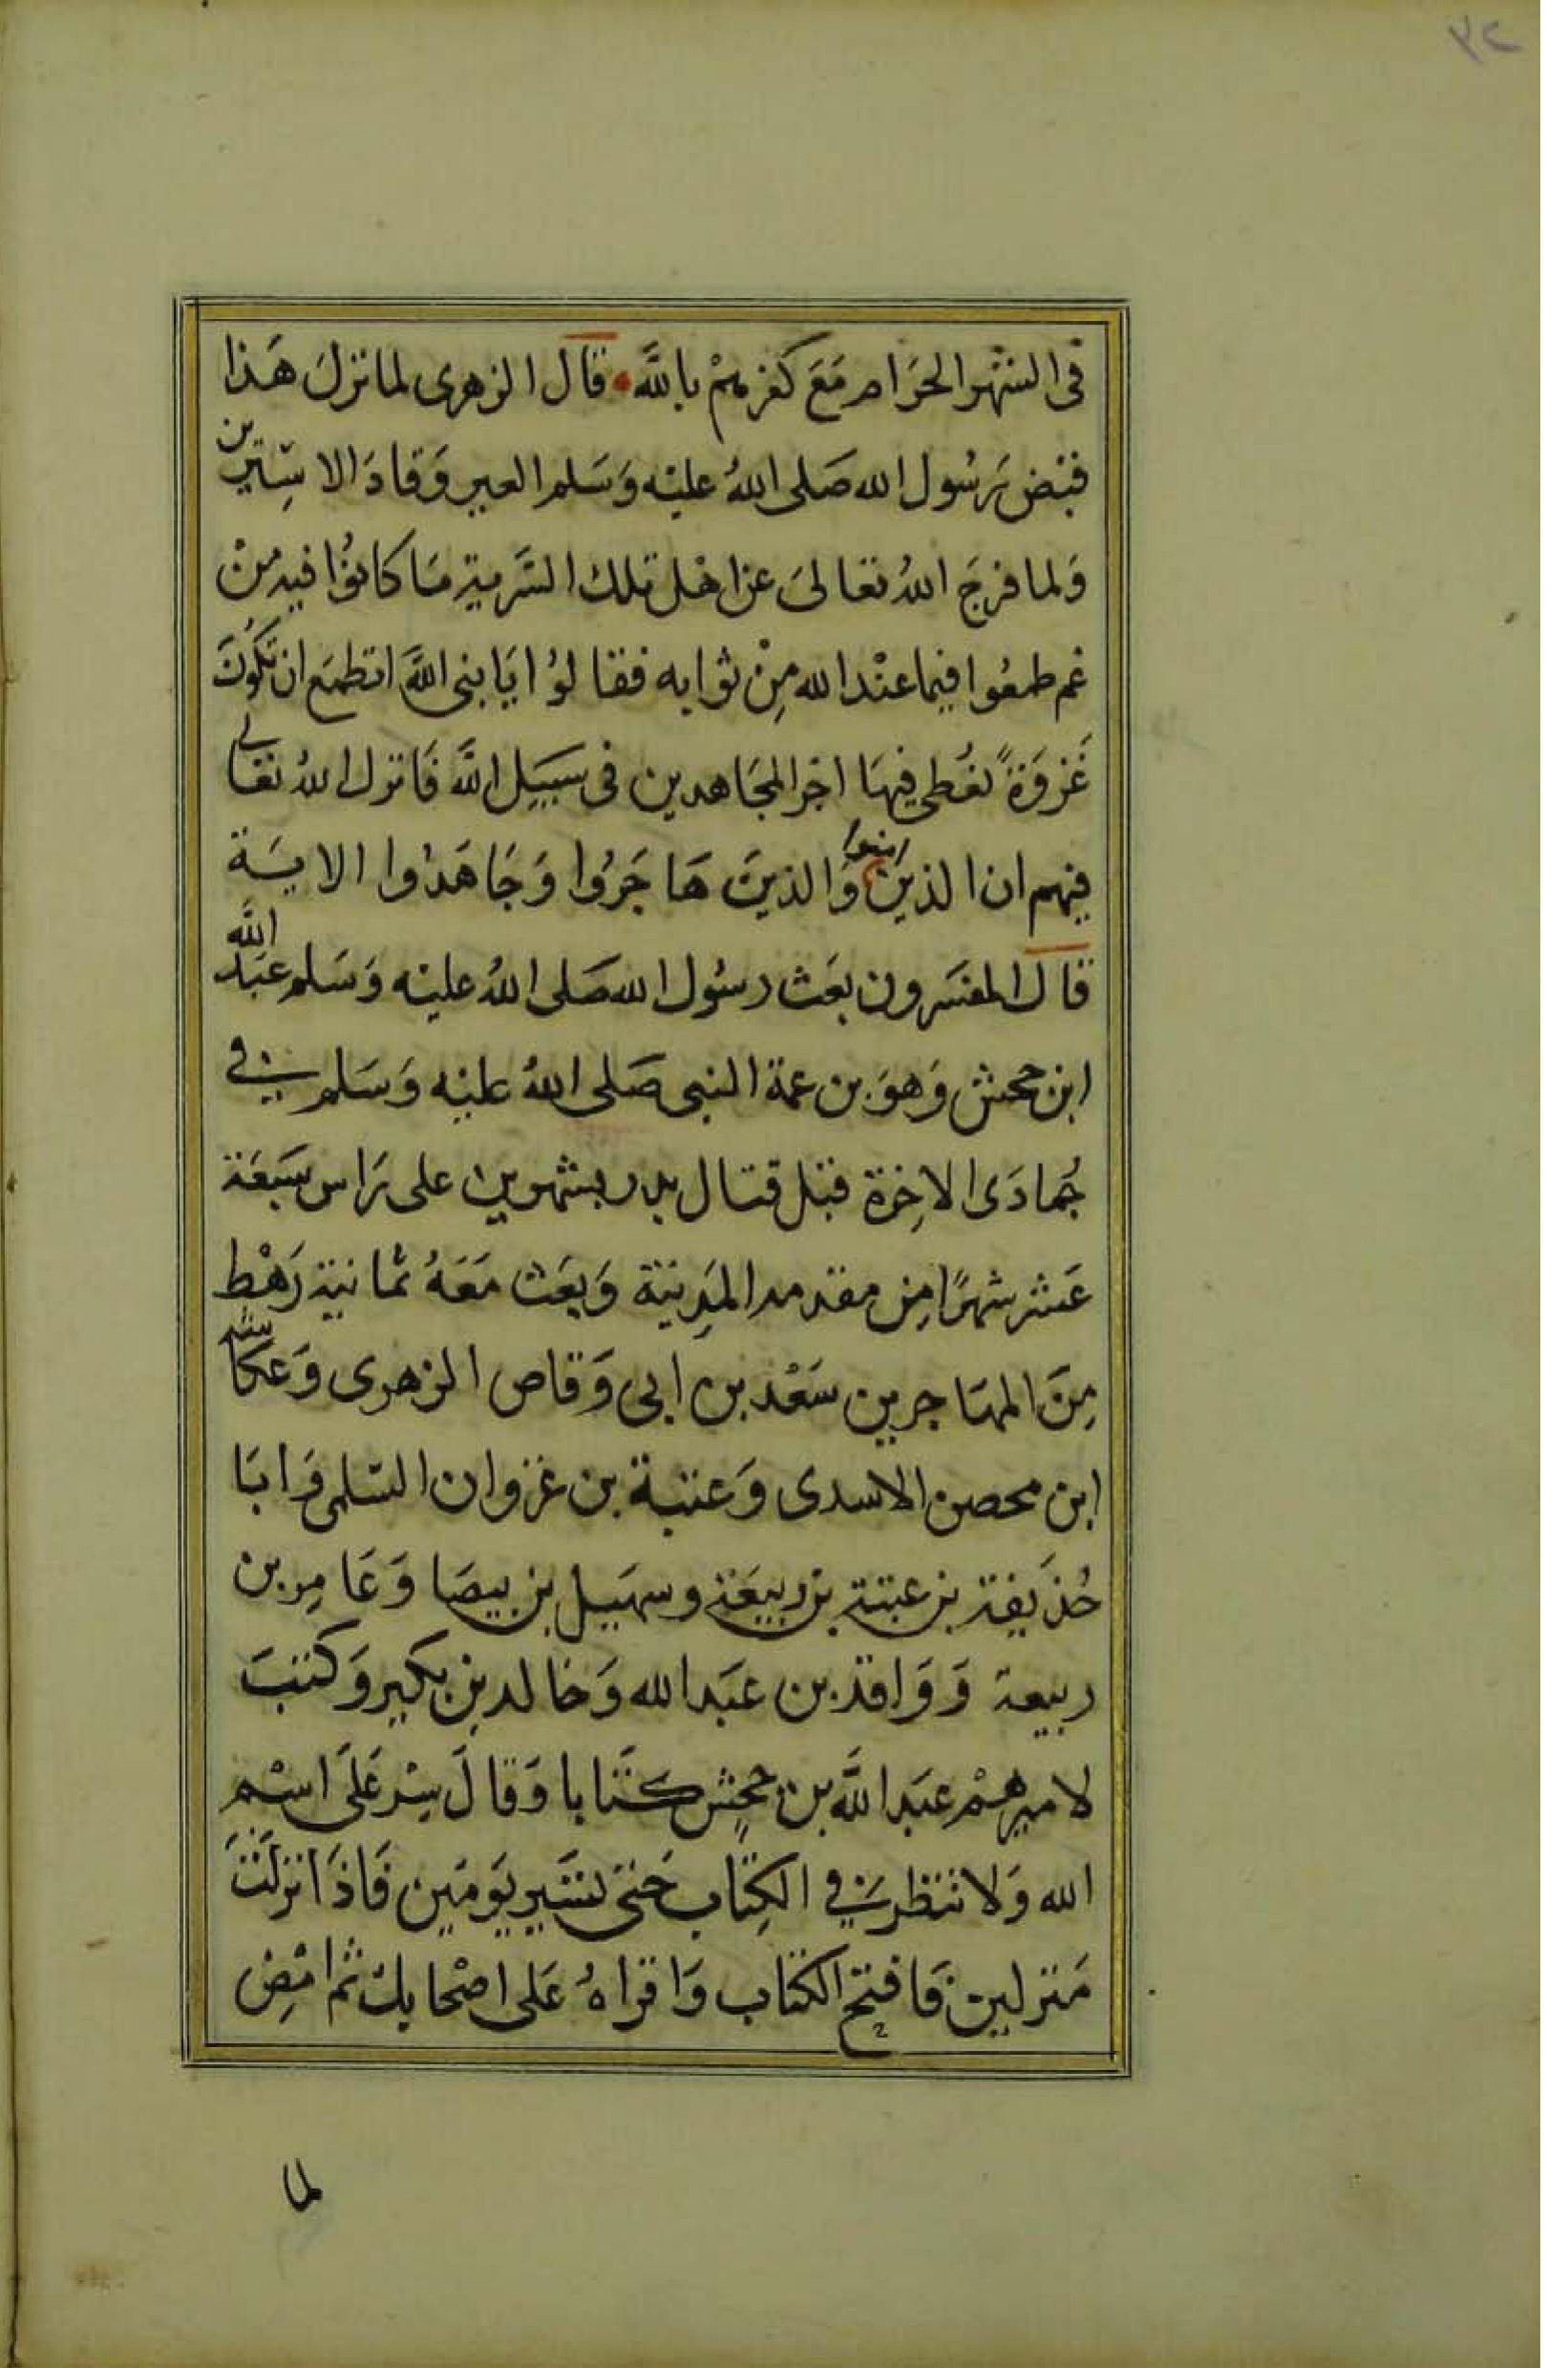 ٣٢
فى الشهر الحَرَام مَعَ كفرهِمْ باللَّه • قال الزهرى لما نزلَ هَذا
فقبض رَسُول الله صَلى اللهُ عليْه وَسَلم العير وَفادَا الاسِيَرين
وَلما فرجَ اللهُ تعَالىَ عن اهْل تلك السَّرية مَا كانوُا فيه منْ
غم طمعُوا فيما عنْد الله مِنْ ثوابه فقالوُا يَا نبى اللَّه اتطمَع ان تكوُنَ
غَزوَةً نعُطى فيهَا اجْر المجَاهدين فى سَبيَل اللَّه فَانزل اللهُ تعَالى
فيهم ان الذينَ امنوا وَالذينَ هَاجَرُوا وَجَاهَدُوا الايَة
قال المفسَرون بعَث رسُول الله صَلى اللهُ عليْه وَسَلم عبَد اللَّه
ابن جحش وَهوَ بن عمة النبى صَلى اللهُ عليْه وَسَلم فى
جُمادَى الاخِرَة قبْل قتال بدر بشهرين على رَاس سَبعَة
عَشر شهرًا مِن مقدمه المَدِينَة وَبعَث مَعَهُ ثمانية رَهْطٍ
مِنَ المهَاجرين سَعْد بن ابى وَقاص الزهرى وَعكاشة
ابن محصن الاسدى وَعتبة بن غزوان السّلمى وَابَا
حُذَيفة بن عتبة بن ربيعَة وسهَيل بن بيضَا وَعَامِر بن
ربيعة وَوَاقد بن عبَد الله وَخالد بن بكير وَكتبَ
لاميرهمْ عبَد اللَّه بن جحشٍ كتَابا وَقالَ سِرْ عَلَى اسْمِ
الله وَلا تنظر فى الكِتَاب حَتىَ تسَير يَومَين فَاذَا نزلَتَ
مَنزلين فَافتح الكتاب وَاقراهُ عَلى اصْحابك ثم امْضِ
لما